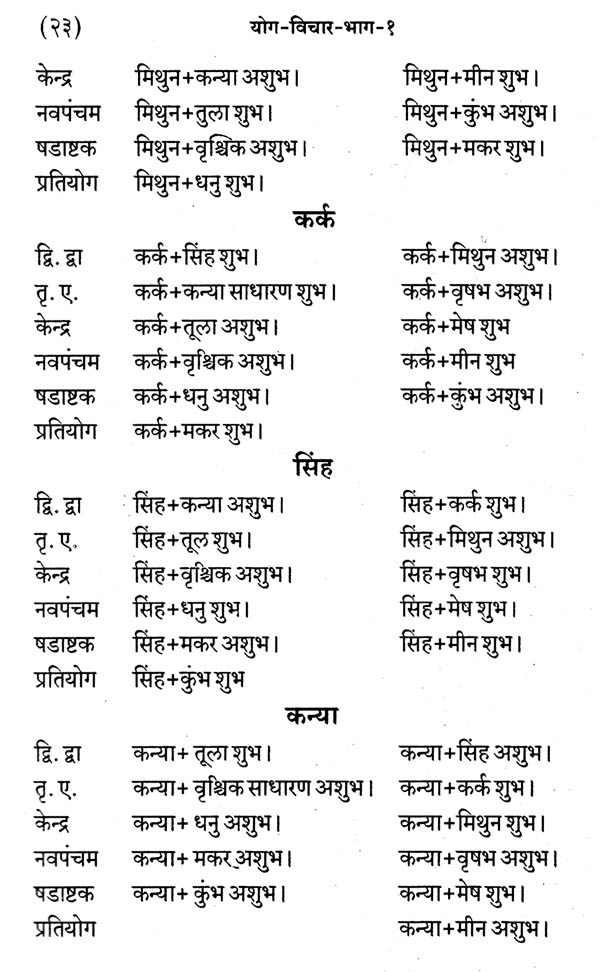 (२३) योग-विचार-भाग-१
केन्द्र मिथुन+कन्या अशुभ। मिथुन+मीन शुभ।
नवपंचम मिथुन+तुला शुभ। मिथुन+कुंभ अशुभ।
षडाष्टक मिथुन+वृश्चिक अशुभ। मिथुन+मकर शुभ।
प्रतियोग मिथुन+धनु शुभ।
कर्क
द्वि. द्वा कर्क+सिंह शुभ। कर्क+मिथुन अशुभ।
तृ. ए. कर्क+कन्या साधारण शुभ। कर्क+वृषभ अशुभ।
केन्द्र कर्क+तूला अशुभ। कर्क+मेष शुभ
नवपंचम कर्क+वृश्चिक अशुभ। कर्क+मीन शुभ
षडाष्टक कर्क+धनु अशुभ। कर्क+कुंभ अशुभ।
प्रतियोग कर्क+मकर शुभ।
सिंह
द्वि. द्वा सिंह+कन्या अशुभ। सिंह+कर्क शुभ।
तृ. ए. सिंह+तूल शुभ। सिंह+मिथुन अशुभ।
केन्द्र सिंह+वृश्चिक अशुभ। सिंह+वृषभ शुभ।
नवपंचम सिंह+धनु शुभ। सिंह+मेष शुभ।
षडाष्टक सिंह+मकर अशुभ। सिंह+मीन शुभ।
प्रतियोग सिंह+कुंभ शुभ
कन्या
द्वि. द्वा कन्या+ तूला शुभ। कन्या+सिंह अशुभ।
तृ. ए. कन्या+ वृश्चिक साधारण अशुभ। कन्या+कर्क शुभ।
केन्द्र कन्या+ धनु अशुभ। कन्या+मिथुन शुभ।
नवपंचम कन्या+ मकर अशुभ। कन्या+वृषभ अशुभ।
षडाष्टक कन्या+ कुंभ अशुभ। कन्या+मेष शुभ।
प्रतियोग कन्या+मीन अशुभ।